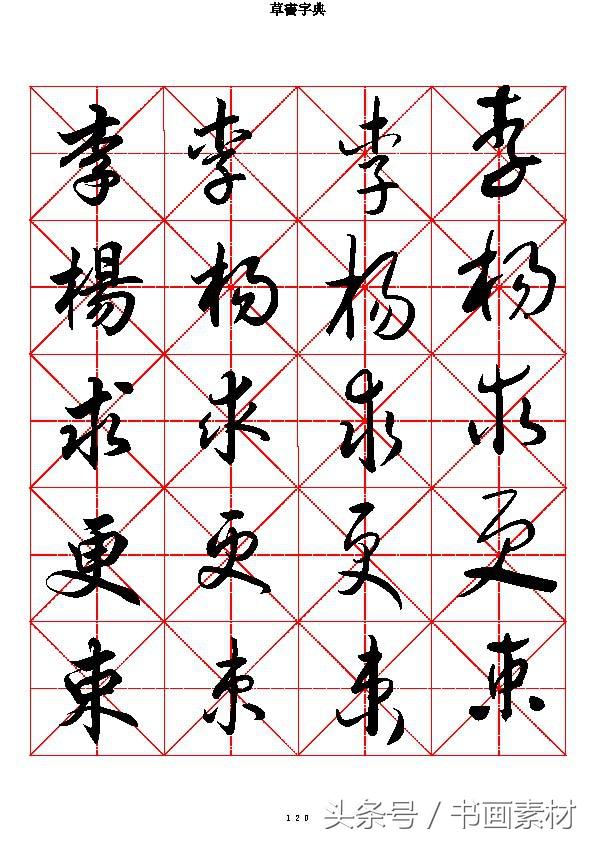 草書字典
李 李 李 李
楊 杨 杨 杨
求 求 求 求
更 更 更 更
束 束 束 束
120
头条号 / 书画素材